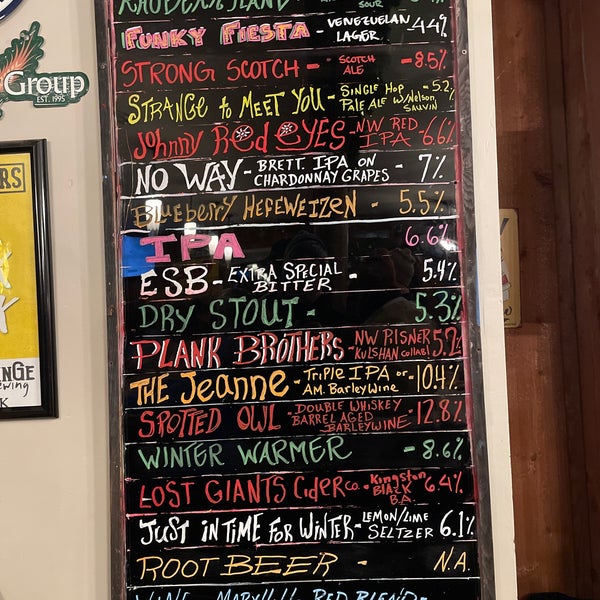 SOUR
FUNKY FIESTA - VENEZUELAN LAGER - 4.4%
STRONG SCOTCH - SCOTCH ALE - 8.5%
STRANGE to MEET YOU - SINGLE HOP PALE ALE W/Nelson SAUVIN - 5.2%
Johnny Red eYES - NW RED IPA - 6.6%
NO WAY - BRETT IPA ON CHARDONNAY GRAPES - 7%
Blueberry HEFEWEIZEN - 5.5%
IPA 6.6%
ESB - EXTRA SPECIAL BITTER - 5.4%
DRY STOUT - 5.3%
PLANK BROTHERS - NW PILSNER KULSHAN collab! 5.2%
THE Jeanne - TRIPLE IPA or AM. BarleyWine - 10.4%
SPOTTED OWL - DOUBLE WHISKEY BARREL AGED BARLEYWINE - 12.8%
WINTER WARMER - 8.6%
LOST GIANTS Cider co. - Kingston BLACK B.A. 6.4%
JUST IN TIME FOR WINTER - LEMON/LIME SELTZER 6.1%
ROOT BEER - N.A.
WINE - MARYHILL RED BLEND -
Group
EST. 1995
RS
NGE
ewing
K